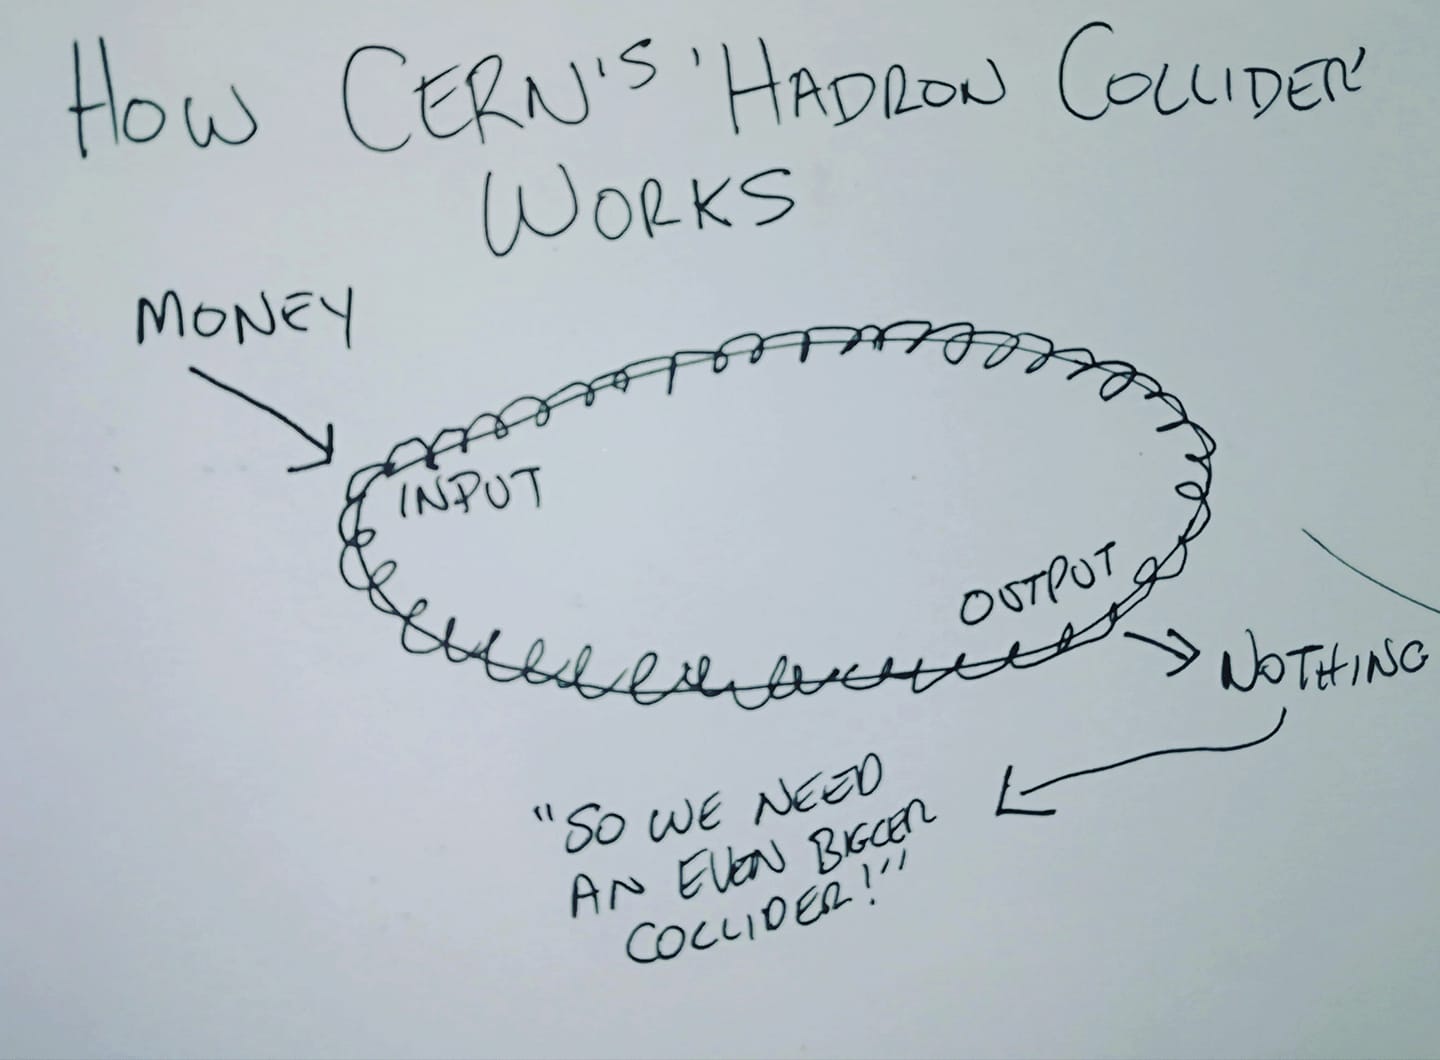 How CERN's 'HADRON COLLIDER'
WORKS
MONEY
INPUT
OUTPUT
NOTHING
"SO WE NEED
AN EVEN BIGGER
COLLIDER!"